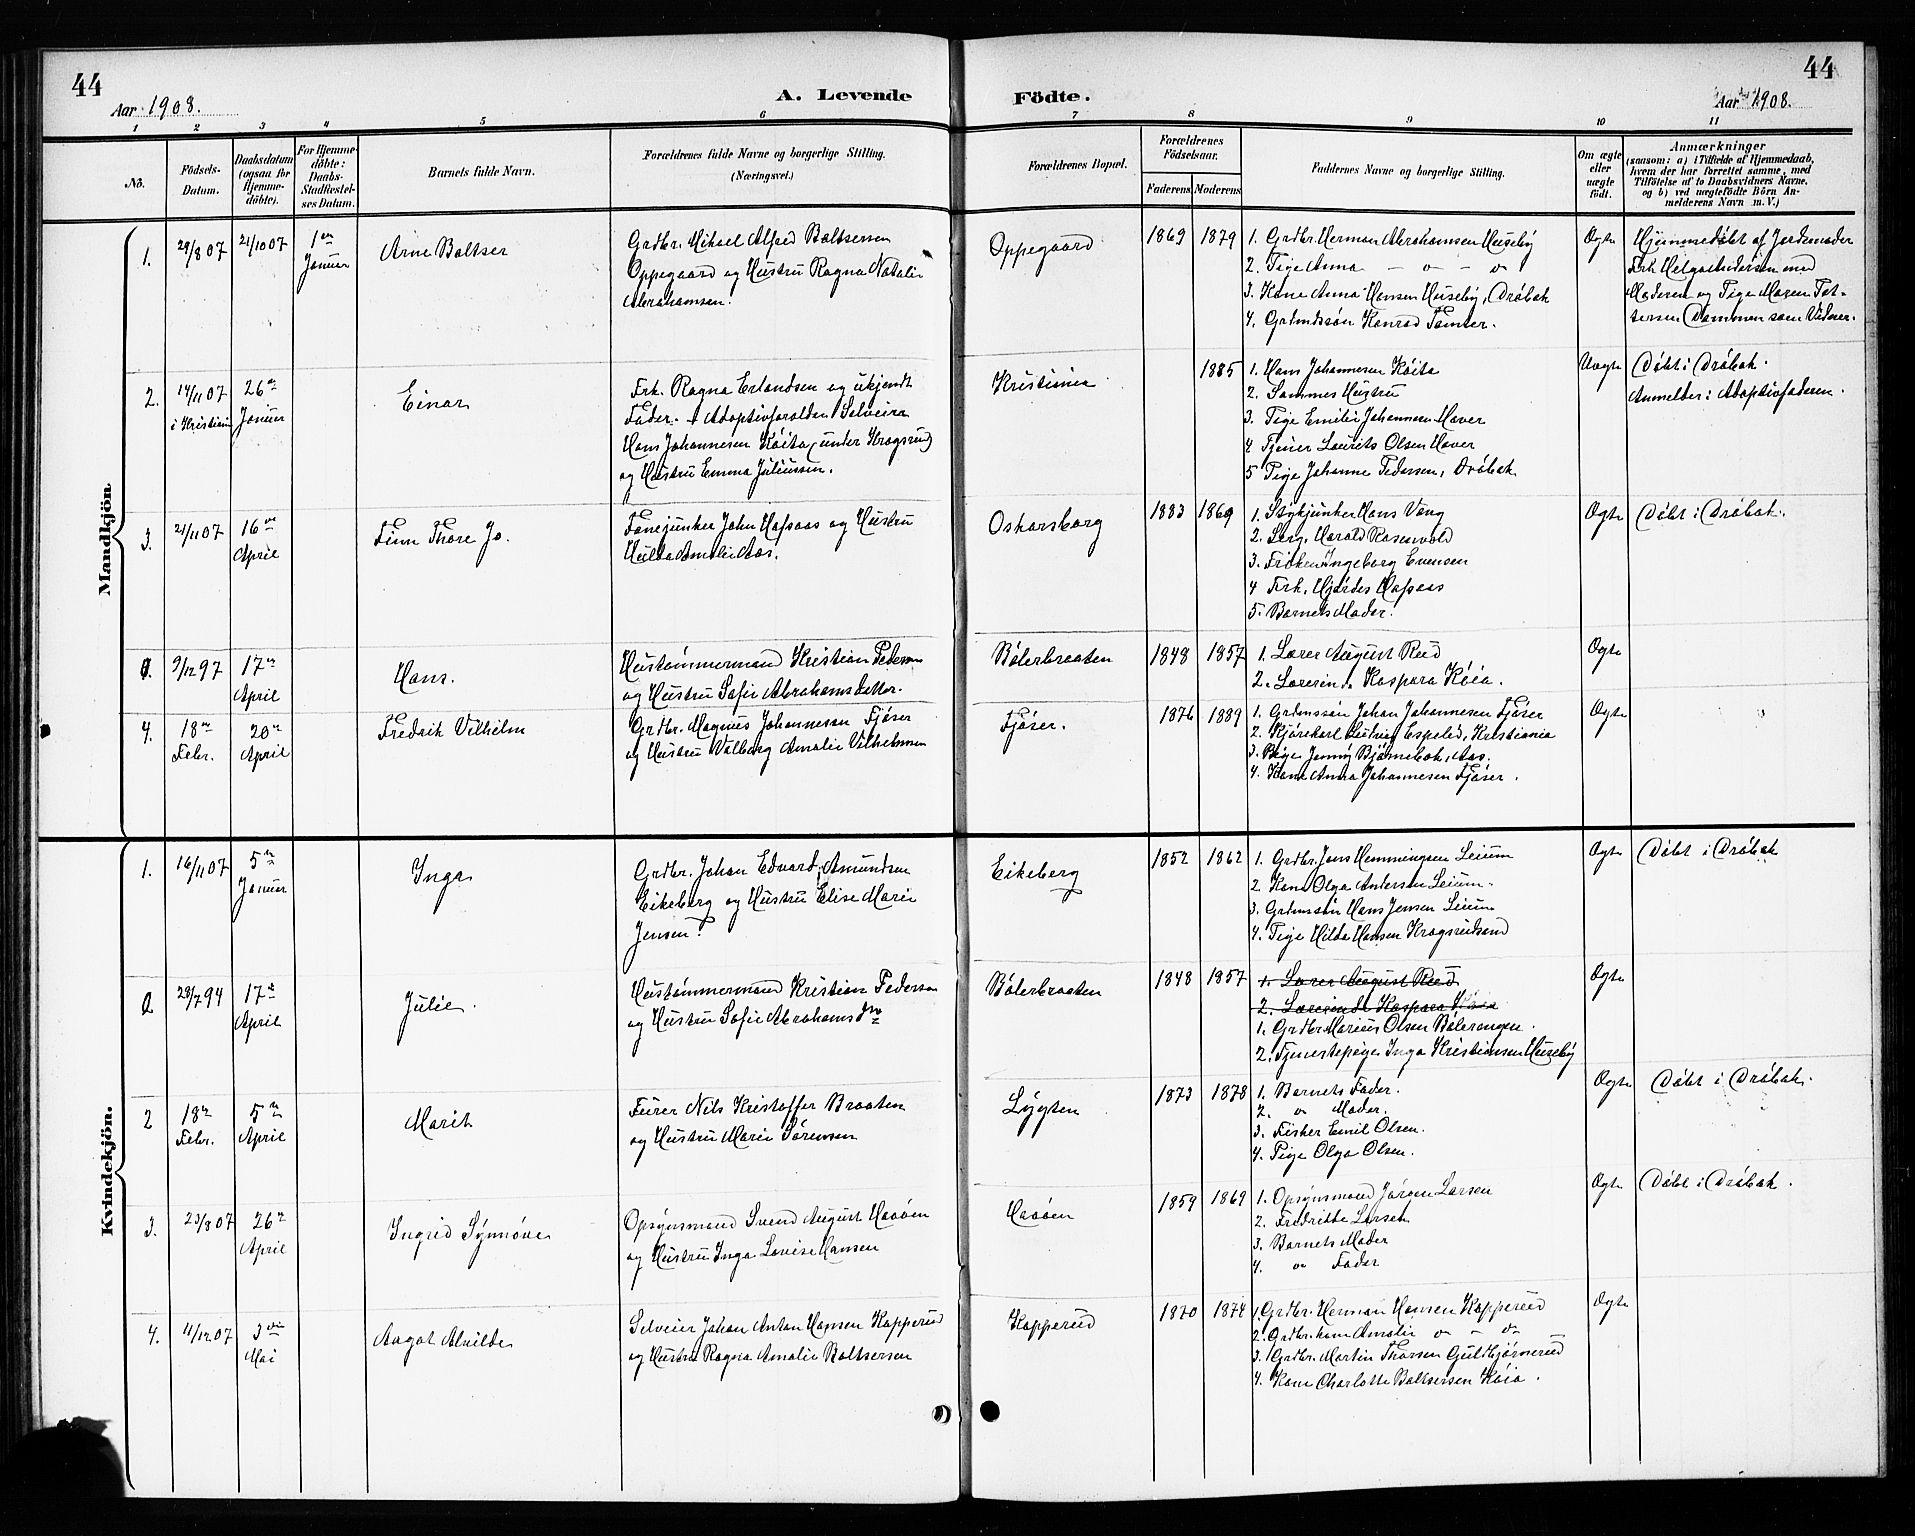 44
Aar 1908.
A. Levende
Födte.
44
Aar 1908.
1 2 3 4 5 6 7 8 9 10 11
No.
Födsels-
Datum.
Daabsdatum
(ogsaa for
Hjemme-
döbte).
For Hjemme-
döbte:
Daabs-
Stadfæstel-
ses Datum.
Barnets fulde Navn.
Forældrenes fulde Navne og borgerlige Stilling.
(Næringsvei.)
Forældrenes Bopæl.
Forældrenes
Födselsaar.
Faderens
Moderens
Faddernes Navne og borgerlige Stilling.
Om ægte
eller
uægte
født.
Anmærkninger
(saasom: a) i Tilfælde af Hjemmedaab,
hvem der har forrettet samme, med
Tilföielse af to Daabsvidners Navne,
og b) ved uægtefödte Börn An-
melderens Navn m. V.)
Mandkjön
1. 29/8 07 21/10 07 1en Januar
Arne Baltser
Grdbr. Mikael Alfred Baltsersen
Oppegaard og Hustru Ragna Natalie
Abrahamsen.
Oppegaard
1869 1879
1. Grdbr. Herman Abrahamsen Huseby
2. Pige Anna — o — o
3. Kone Anna Hansen Huseby, Drøbak
4. Grdmdssøn Konrad Tomter.
Ægte
Hjemmedøbt af Jordemoder
Frk Helga Pedersen med
Moderen og Pige Maren Pet-
tersen Dammen som Vidner.
2. 14/11 07 i Kristiania 26de Januar
Einar
Frk. Ragna Erlandsen og ukjendt
Fader. + Adoptivforældre Selveier
Hans Johannesen Køita (under Krogsrud)
og Hustru Emma Juliussen.
Kristiania
1885
1. Hans Johannesen Køita
2. Sammes Hustru
3. Pige Emilie Johannesen Haver
4 Tjener Laurits Olsen Haver
5 Pige Johanne Pedersen, Drøbak
Uægte
Døbt i Drøbak.
Anmelder: Adoptivfaderen.
3. 21/11 07 16de April
Finn Thore Jo.
Fanejunker John Hafsaas og Hustru
Hilda Amalie Aas.
Oskarsborg
1883 1869
1. Stykjunker Hans Vang
2. Serg. Harald Rosenvold
3. Frøken Ingeborg Evensen
4 Frk. Hjørdes Hafsaas
5. Barnets Moder.
Ægte
Døbt i Drøbak.
0. 9/12 97 17de April
Hans.
Hustømmermand Kristian Pedersen
og Hustru Sofie Abrahamsdatter.
Bølerbraaten
1848 1857
1. Lærer August Rud
2. Lærerinde Kaspara Køia.
Ægte
4. 18de Febr. 20de April
Fredrik Vilhelm
Grdbr. Magnus Johannesen Fjøser
og Hustru Valborg Amalie Vilhelmsen
Fjøser.
1876 1889
1. Grdmssøn Johan Johannesen Fjøser
2. Kjørekarl Ludvig Espelid, Kristiania
3. Pige Jenny Bjørnebæk, Aas.
4. Kone Anna Johannesen Fjøser.
Ægte
Kvindekjön.
1. 16/11 07 5te Januar
Inga
Grdbr. Johan Edvard Amundsen
Eikeberg og Hustru Elise Marie
Jensen.
Eikeberg
1852 1862
1. Grdbr. Jens Hemmingsen Leium
2. Kone Olga Andersen Leium.
3. Grdmssøn Hans Jensen Leium
4. Pige Hilda Hansen Krogsrudsand
Ægte
Døbt i Drøbak
0 29/7 94 17de April
Julie.
Hustømmermand Kristian Pedersen
og Hustru Sofie Abrahamsdtr
Bølerbraaten
1848 1857
1. Lærer August Rud
2. Lærerinde Kaspara Køia
1. Grdbr. Marius Olsen Bølerengen.
2. Tjenestepige Inga Kristiansen Huseby
Ægte
2 18de Febr. 5te April
Marit
Furer Nils Kristoffer Braaten
og Hustru Marie Sørensen
Lygten
1873 1878
1. Barnets Fader.
2. " Moder.
3. Fisker Emil Olsen.
4. Pige Olga Olsen.
Ægte
Døbt i Drøbak.
3. 23/8 07 26de April
Ingrid Synnøve
Opsynsmand Svend August Haaøen
og Hustru Inga Lovise Hansen
Haaøen
1859 1869
1. Opsynsmand Jørgen Larsen
2. Fredrikke Larsen
3. Barnets Moder
4. " Fader
Ægte
Døbt i Drøbak.
4. 11/12 07 3die Mai
Aagot Alvilde
Selveier Johan Anton Hansen Kopperud
og Hustru Ragna Amalie Baltsersen
Kopperud
1870 1874
1. Grdbr. Herman Hansen Kopperud
2. Grdbr. kone Amalie o — o
3. Grdbr. Martin Thorsen Guldbjørnerud
4. Kone Charlotte Baltsersen Køia.
Ægte